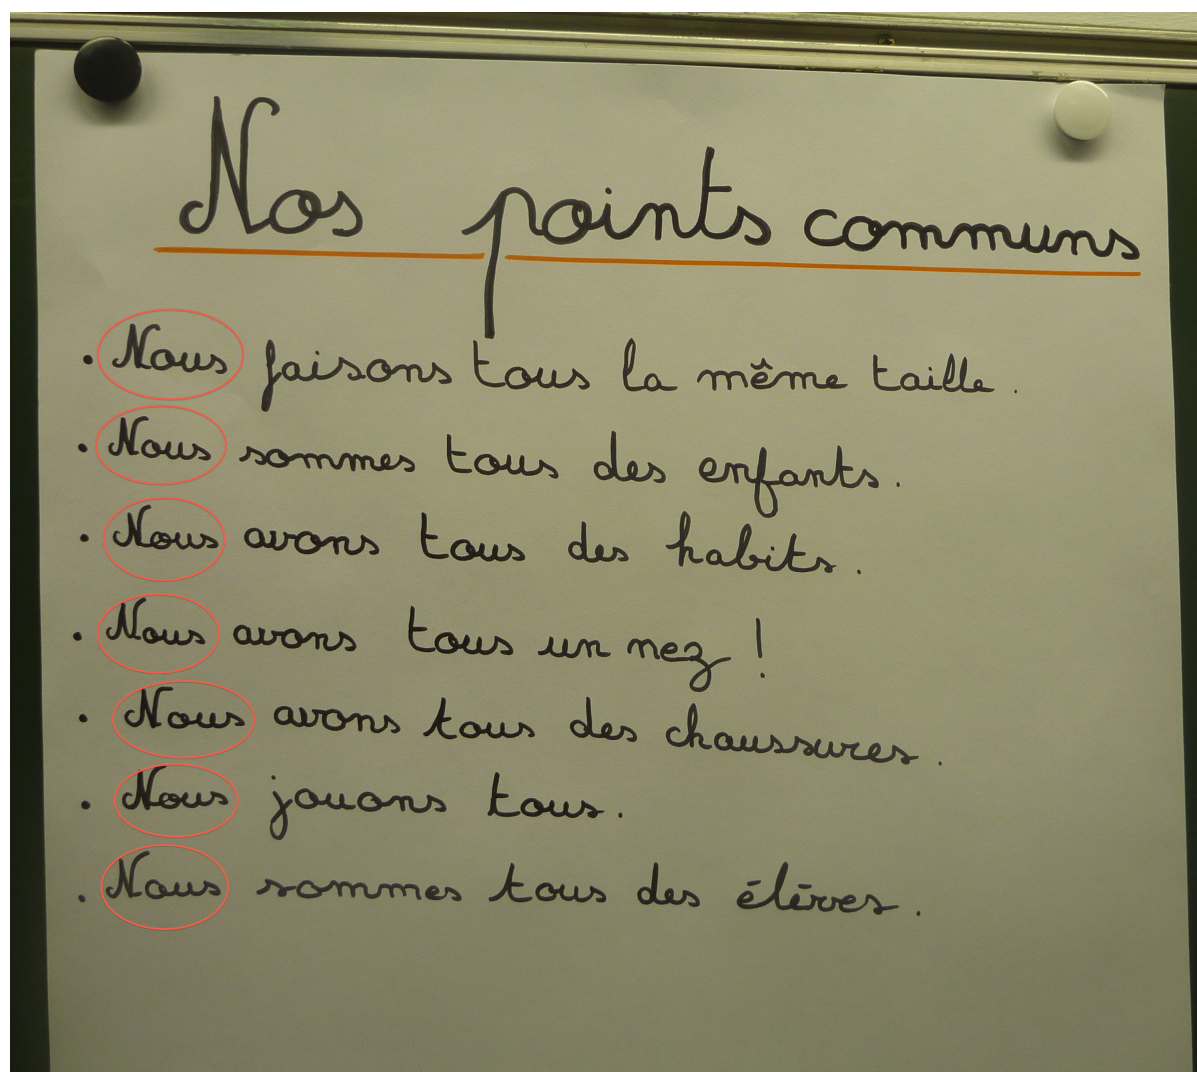 Nos points communs
. Nous faisons tous la même taille.
. Nous sommes tous des enfants.
. Nous avons tous des habits.
. Nous avons tous un nez !
. Nous avons tous des chaussures.
. Nous jouons tous.
. Nous sommes tous des élèves.